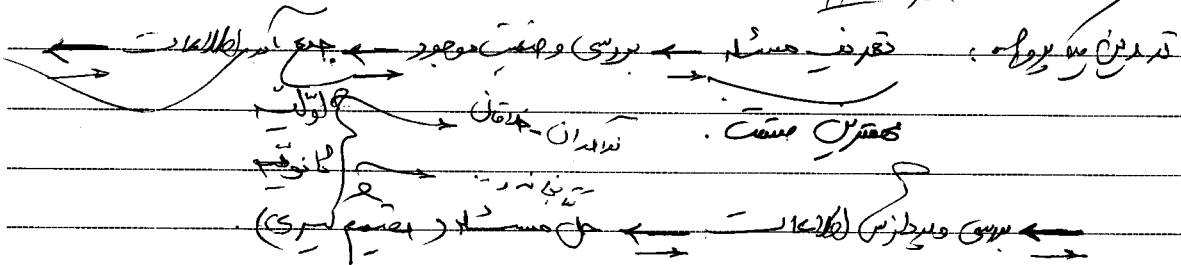 تدوین یک پروژه : تعریف مسئله ← بررسی وضعیت موجود ← جمع آوری اطلاعات ←
مهمترین قسمت . اولیه
ثانویه
← بررسی و پردازش اطلاعات ← حل مسئله ( تصمیم گیری ) .